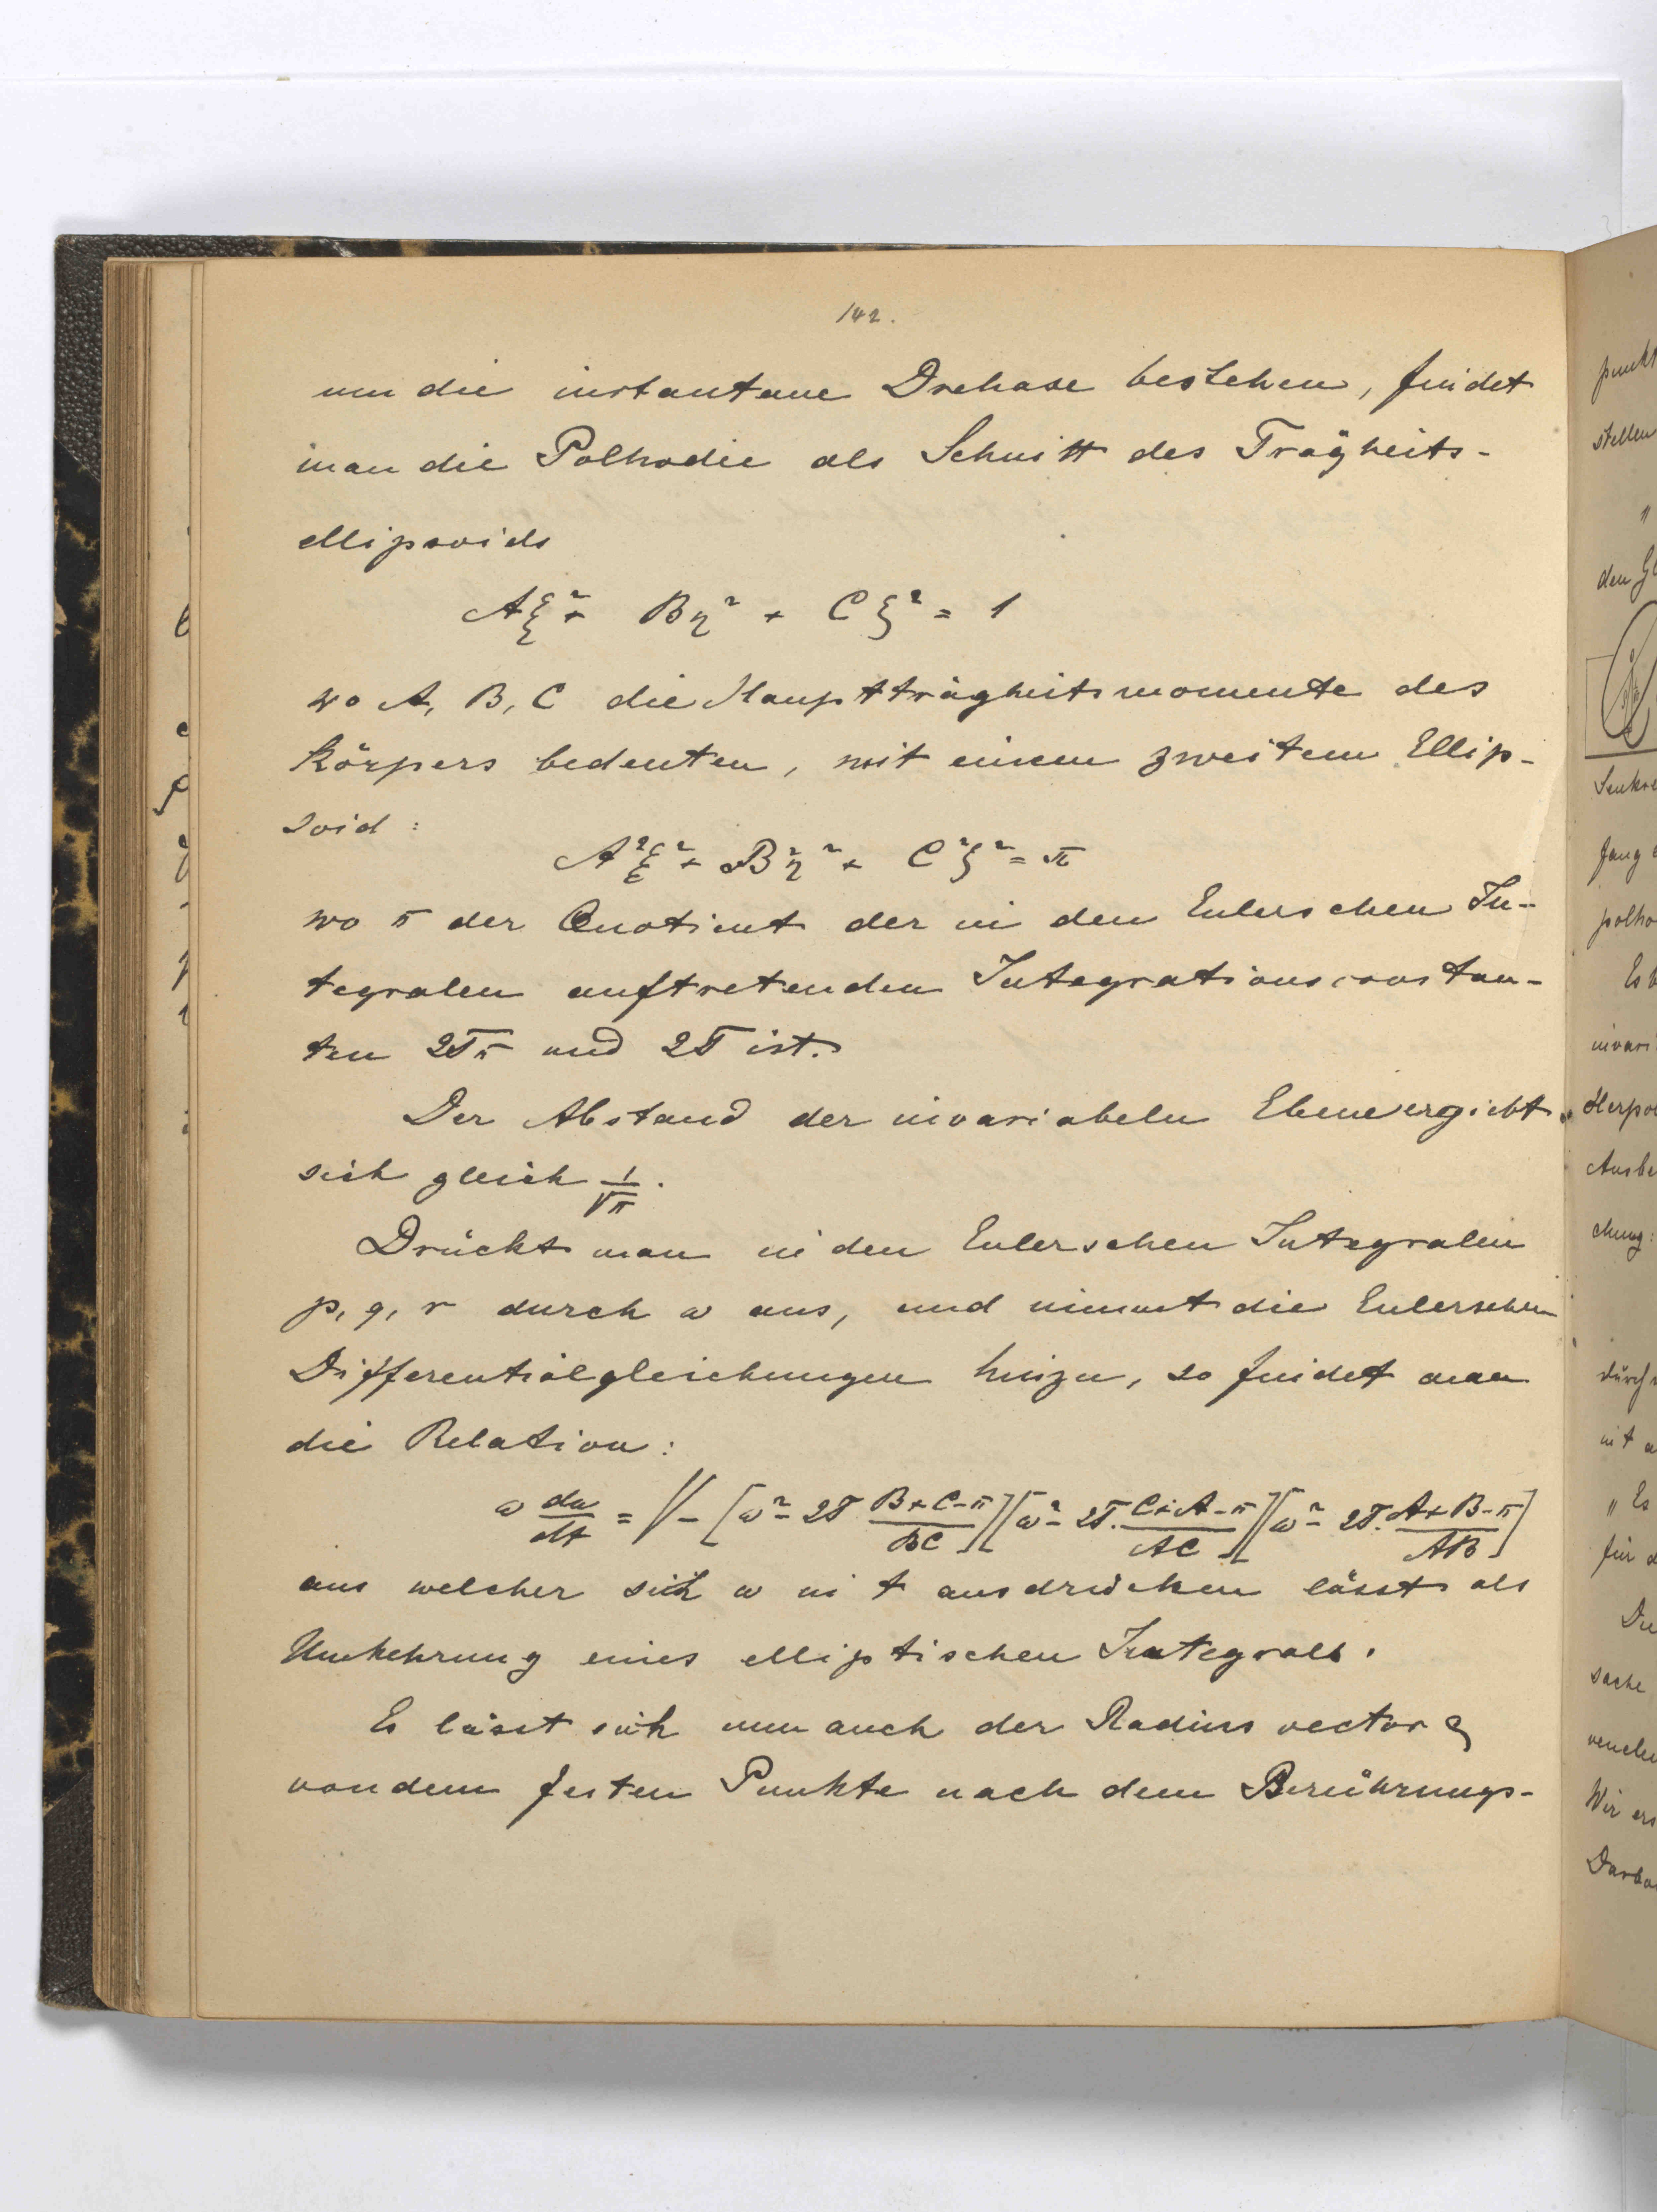 142.
um die instantane Drehaxe bestehen, findet
man die Polhodie als Schnitt des Trägheits-
ellipsoids
Aξ² + Bη² + Cζ² = 1
wo A, B, C die Hauptträgheitsmomente des
Körpers bedeuten, mit einem zweitem Ellip-
soid:
A²ξ² + B²η² + C²ζ² = π
wo π der Quotient der in den Eulerschen In-
tegralen auftretenden Integrationsconstan-
ten 2Tπ und 2T ist.
Der Abstand der invariabeln Ebene ergiebt
sich gleich 1/√π.
Drückt man in den Eulerschen Integralen
p, q, r durch ω aus, und nimmt die Eulerschen
Differentialgleichungen hinzu, so findet man
die Relation:
ω dω/dt = √-[ω² - 2T (B+C-π)/BC][ω² - 2T. (C+A-π)/AC][ω² - 2T. (A+B-π)/AB]
aus welcher sich ω in t ausdrücken lässt als
Umkehrung eines elliptischen Integrals.
Es lässt sich nun auch der Radius vector ϱ
von dem festen Punkte nach dem Berührungs-